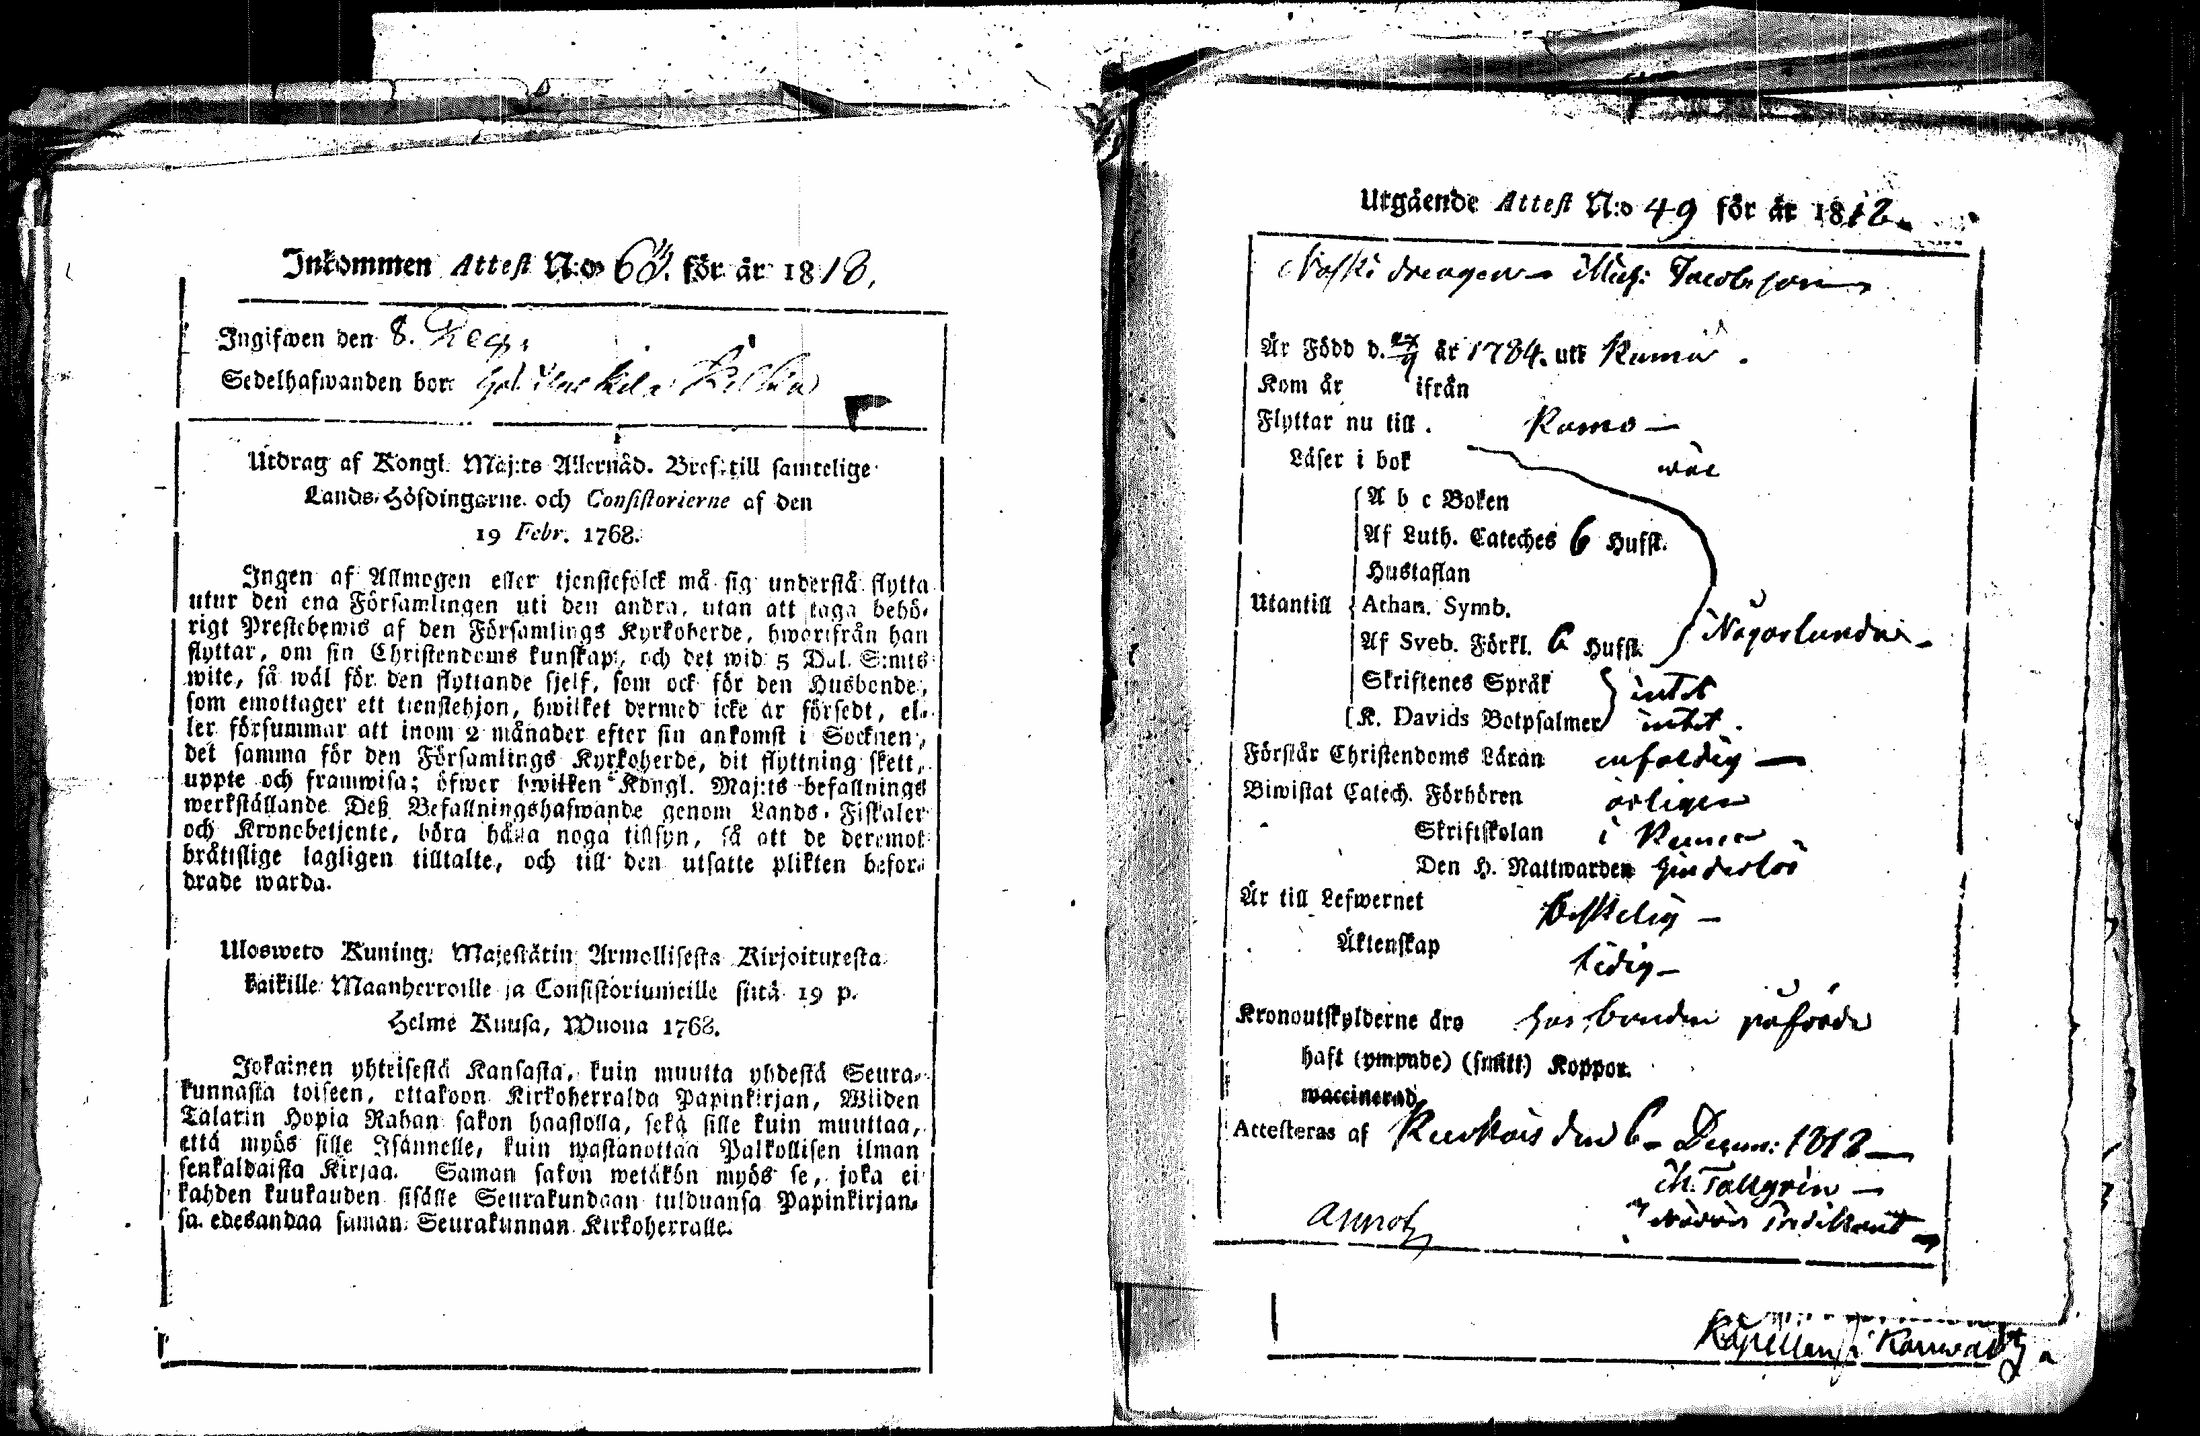 Inkommen Attest N:o 63. för år 1818.
Ingifwen den 8. Dec.
Sedelhafwanden bor:
Utdrag af Kongl. Maj:ts Allernåd. Bref till samtelige
Lands-Höfdingarne och Consistorierne af den
19 Febr. 1768.
Ingen af Allmogen eller tjenstefolck må sig understå flytta
utur den ena Församlingen uti den andra, utan att taga behö-
rigt Prestebewis af den Församlings Kyrkoherde, hwarifrån han
flyttar, om sin Christendoms kunskap, och det wid 5 Dal. S:mts
wite, så wäl för den flyttande sjelf, som ock för den Husbonde,
som emottager ett tienstehjon, hwilket dermed icke är försedt, el-
ler försummar att inom 2 månader efter sin ankomst i Socknen,
det samma för den Församlings Kyrkoherde, dit flyttning skett,
uppte och framwisa; öfwer hwilken Kongl. Maj:ts befallnings
werkställande Deß Befallningshafwande genom Lands-Fiskaler
och Kronobetjente, böra hålla noga tillsyn, så att de deremot
bråttslige lagligen tilltalte, och till den utsatte plikten befor-
drade warda.
Ulosweto Kuning. Majestätin Armollisesta Kirjoituxesta
kaikille Maanherroille ja Consistoriumeille siitä 19 p.
Helme Kuusa, Wuona 1768.
Jokainen yhteisestä Kansasta, kuin muutta yhdestä Seura-
kunnasta toiseen, ottakoon Kirkoherralda Papinkirjan, Wiiden
Talarin Hopia Rahan sakon haastolla, sekä sille kuin muuttaa,
että myös sille Isännelle, kuin wastanottaa Palkollisen ilman
senkaldaista Kirjaa. Saman sakon wetäkön myös se, joka ei
kahden kuukauden sisälle Seurakundaan tulduansa Papinkirjan-
sa edesandaa saman Seurakunnan Kirkoherralle.
Utgående Attest N:o 49 för år 1818.
drengen Mich: Jacobsson
Är Född d. 27/9 år 1784. uti Kumo.
Kom år ifrån
Flyttar nu till. Kumo —
Läser i bok wäl
A b c Boken
Af Luth. Cateches 6 Hufst.
Hustaflan
Utantill Athan. Symb.
Af Sveb. Förkl. 6 Hufst. Någorlunda —
Skriftenes Språk intet
K. Davids Botpsalmer intet.
Förstår Christendoms Läran enfaldig —
Biwistat Catech. Förhören årligen
Skriftskolan i Kumo
Den H. Nattwarden hinderlös
Är till Lefwernet beskelig —
Äktenskap ledig —
Kronoutskylderne äro hos bonden påförde
haft (ympade) (smitt) Koppor.
waccinerad
Attesteras af den 6 Decem: 1818 —
Tallgrén —
Annot